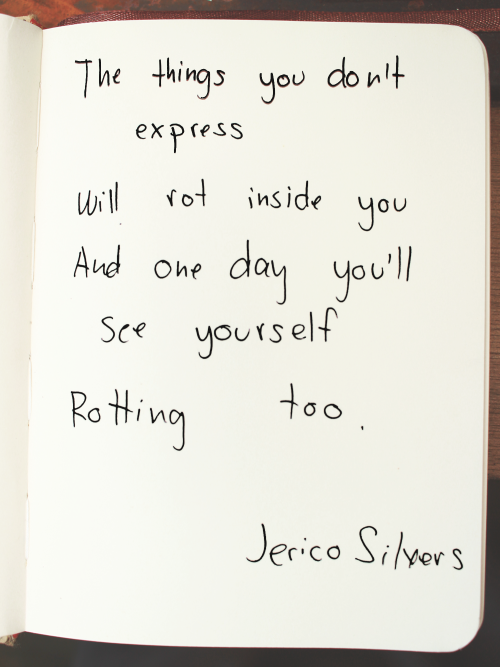 The things you don't
express
Will rot inside you
And one day you'll
See yourself
Rotting too.
Jerico Silvers